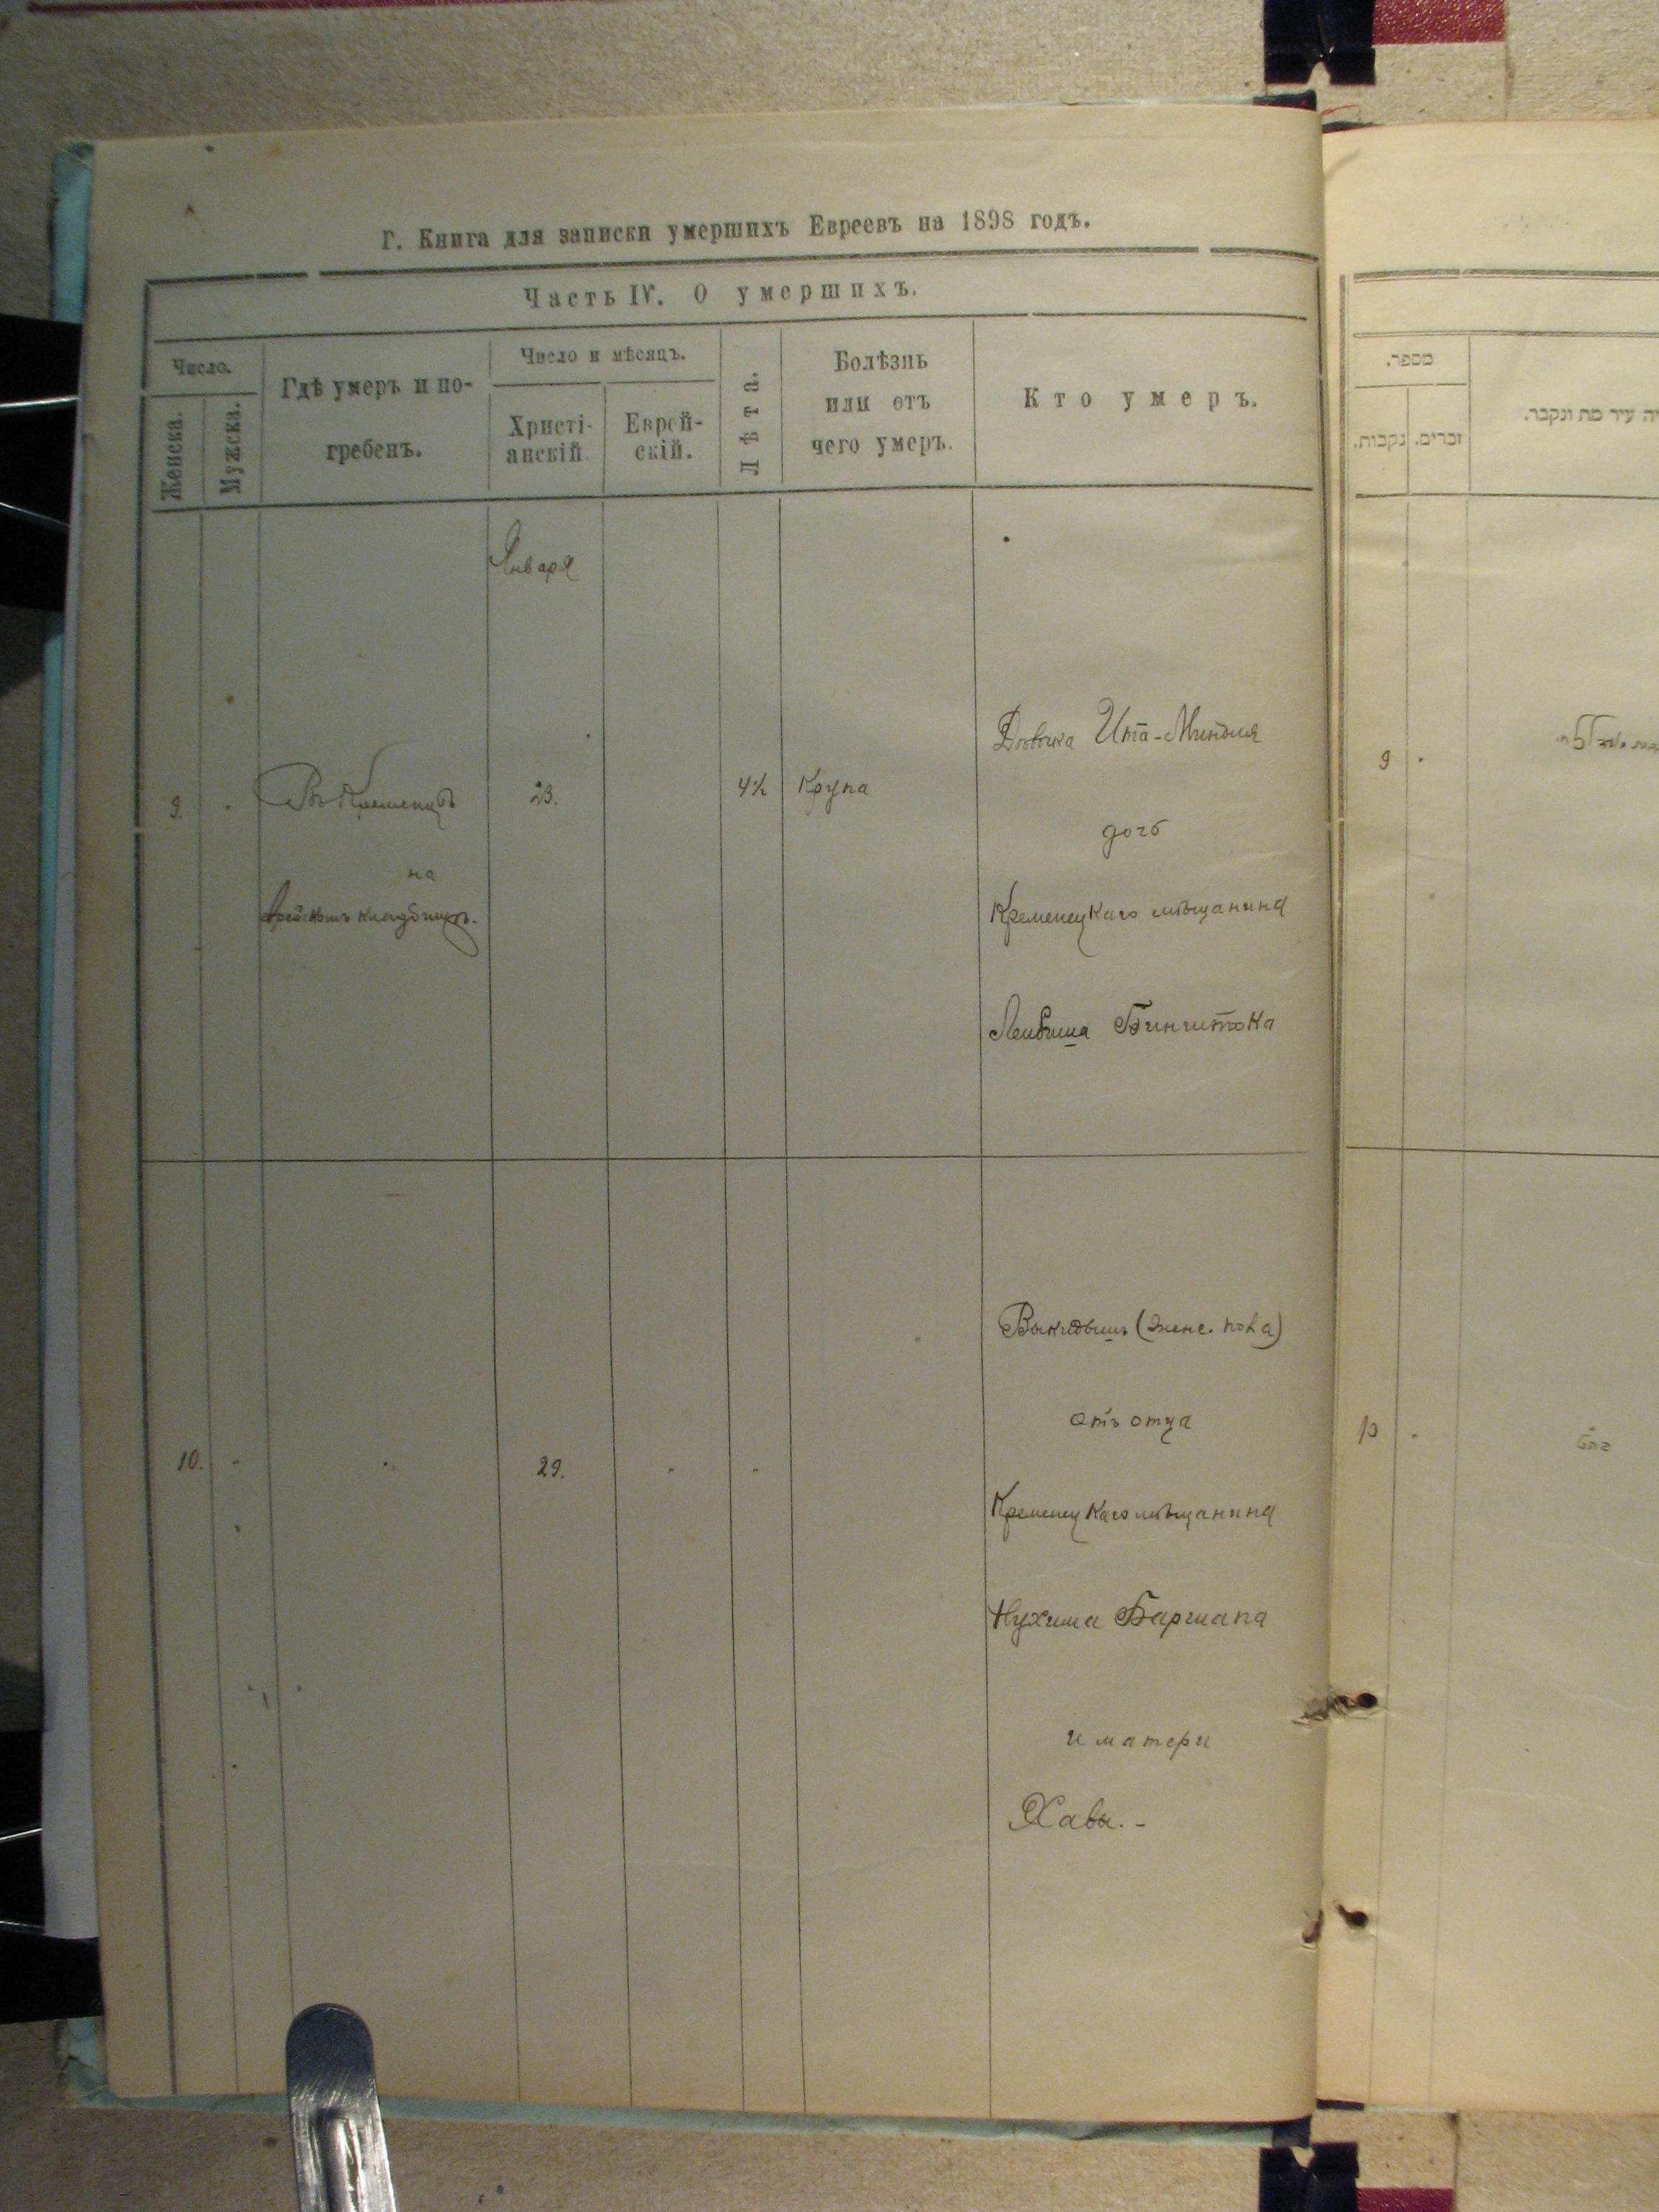 Г. Книга для записки умершихъ Евреевъ на 1898 годъ.
Часть IV. О умершихъ.
Число.
Женска.
Мужска.
Гдѣ умеръ и по-
гребенъ.
Число и мѣсяцъ.
Христі-
анскій.
Еврей-
скій.
Лѣта.
Болѣзнь
или отъ
чего умеръ.
Кто умеръ.
Января
9.
Въ Кременцѣ
на
еврейскомъ кладбищѣ.
23.
4½
Крупа
Дѣвочка Ита-Миндля
дочь
Кременецкаго мѣщанина
Лейбиша Бинштока
10.
29.
Выкидышъ (женс. пола)
отъ отца
Кременецкаго мѣщанина
Нухима Бармана
и матери
Хавы. -
מספר.
נקבות.
זכרים.
עיר מת ונקבר.
9
10